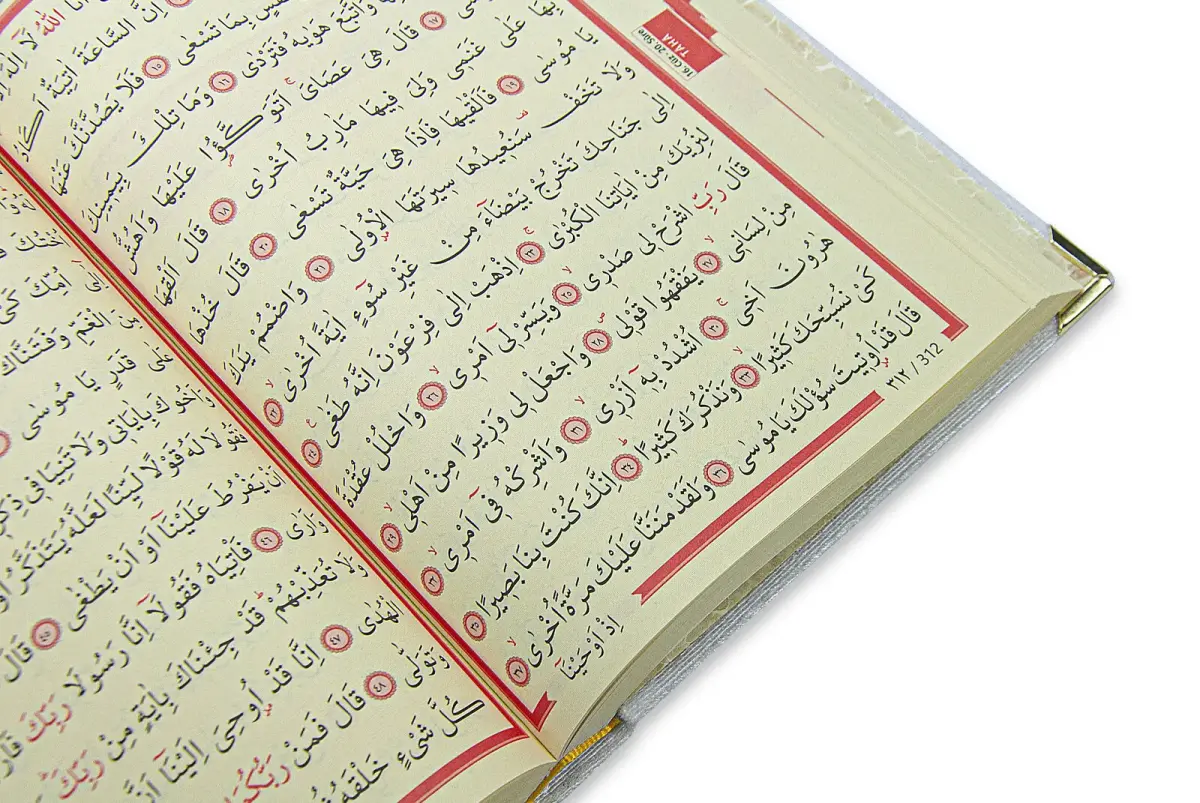 16. Cüz - 20. Sûre
TAHA
اَنَا اللّٰهُ لَٓا
اِنَّ السَّاعَةَ اٰتِيَةٌ اَكَادُ
بِمَا تَسْعٰى ١٥ فَلَا يَصُدَّنَّكَ عَنْهَا
وَاتَّبَعَ هَوٰيهُ فَتَرْدٰى ١٦ وَمَا تِلْكَ بِيَمِينِكَ
١٧ قَالَ هِيَ عَصَايَ اَتَوَكَّؤُا عَلَيْهَا وَاَهُشُّ
بِهَا عَلٰى غَنَمِى وَلِىَ فِيهَا مَاٰرِبُ اُخْرٰى ١٨ قَالَ اَلْقِهَا
يَا مُوسٰى ١٩ فَاَلْقٰيهَا فَاِذَا هِيَ حَيَّةٌ تَسْعٰى ٢٠ قَالَ خُذْهَا
وَلَا تَخَفْ سَنُعِيدُهَا سِيرَتَهَا الْاُولٰى ٢١ وَاضْمُمْ يَدَكَ
اِلٰى جَنَاحِكَ تَخْرُجْ بَيْضَٓاءَ مِنْ غَيْرِ سُٓوءٍ اٰيَةً اُخْرٰى ٢٢
لِنُرِيَكَ مِنْ اٰيَاتِنَا الْكُبْرٰى ٢٣ اِذْهَبْ اِلٰى فِرْعَوْنَ اِنَّهُ طَغٰى ٢٤
قَالَ رَبِّ اشْرَحْ لِى صَدْرِى ٢٥ وَيَسِّرْ لِٓى اَمْرِى ٢٦ وَاحْلُلْ عُقْدَةً
مِنْ لِسَانِى ٢٧ يَفْقَهُوا قَوْلِى ٢٨ وَاجْعَلْ لِى وَزِيرًا مِنْ اَهْلِى ٢٩
هٰرُونَ اَخِى ٣٠ اُشْدُدْ بِهٓ اَزْرِى ٣١ وَاَشْرِكْهُ فِٓى اَمْرِى ٣٢
كَىْ نُسَبِّحَكَ كَثِيرًا ٣٣ وَنَذْكُرَكَ كَثِيرًا ٣٤ اِنَّكَ كُنْتَ بِنَا بَصِيرًا ٣٥
قَالَ قَدْ اُوتِيتَ سُؤْلَكَ يَا مُوسٰى ٣٦ وَلَقَدْ مَنَنَّا عَلَيْكَ مَرَّةً اُخْرٰى ٣٧
اِذْ اَوْحَيْنَٓا
٣١٢ / 312
اُخْتُكَ
اِلٰٓى اُمِّكَ كَىْ
مِنَ الْغَمِّ وَفَتَنَّاكَ
عَلٰى قَدَرٍ يَا مُوسٰى
وَاَخُوكَ بِاٰيَاتِى وَلَا تَنِيَا فِى
فَقُولَا لَهُ قَوْلًا لَيِّنًا لَعَلَّهُ يَتَذَكَّرُ اَوْ
اَنْ يَفْرُطَ عَلَيْنَٓا اَوْ اَنْ يَطْغٰى ٤٥ قَالَ
وَاَرٰى ٤٦ فَأْتِيَاهُ فَقُولَٓا اِنَّا رَسُولَا رَبِّكَ
وَلَا تُعَذِّبْهُمْ قَدْ جِئْنَاكَ بِاٰيَةٍ مِنْ رَبِّكَ
الْهُدٰى ٤٧ اِنَّا قَدْ اُوحِىَ اِلَيْنَٓا اَنَّ
وَتَوَلّٰى ٤٨ قَالَ فَمَنْ رَبُّكُمَا
كُلَّ شَىْءٍ خَلْقَهُ